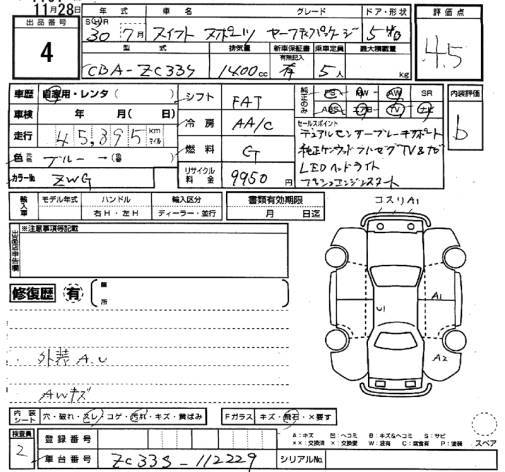 11月28日
出品番号 4
年式 車名 グレード ドア・形状 評価点
30年7月 スイフト スポーツ セーフティパッケージ 5HB 4.5
型式 排気量 新車保証書 有無記入 乗車定員 最大積載量
CBA-ZC33S 1400cc 有 5人 kg
車歴 自家用・レンタ( ) シフト FAT 純正のみ PS PW AW SR
ABS エアB TV ナビ 内装評価 b
車検 年 月( 日) 冷房 AA/C セールスポイント
走行 45,395 km マイル 燃料 G デュアルセンサーブレーキサポート
純正ケンウッドフルセグTV&ナビ
色 ブルー (替 ) リサイクル料金 9950円 LEDヘッドライト
カラー№ ZWG プッシュエンジンスタート
輸入車 モデル年式 ハンドル 輸入区分 書類有効期限
年 右H・左H ディーラー・並行 月 日迄
※注意事項等記載
コスリA1
修復歴 有 箇所
U1 A1
A2
外装A.U
AWキズ
内装シート 穴・破れ・スレ・コゲ・汚れ・キズ・黄ばみ Fガラス キズ・飛石・×要す
検査員 2 登録番号
A:キズ U:凹ミ B:キズ&ヘコミ S:サビ
××:交換済 ×:交換要 W:波有 C:腐食有 P:塗装 スペア
車台番号 ZC33S-112229 シリアル№